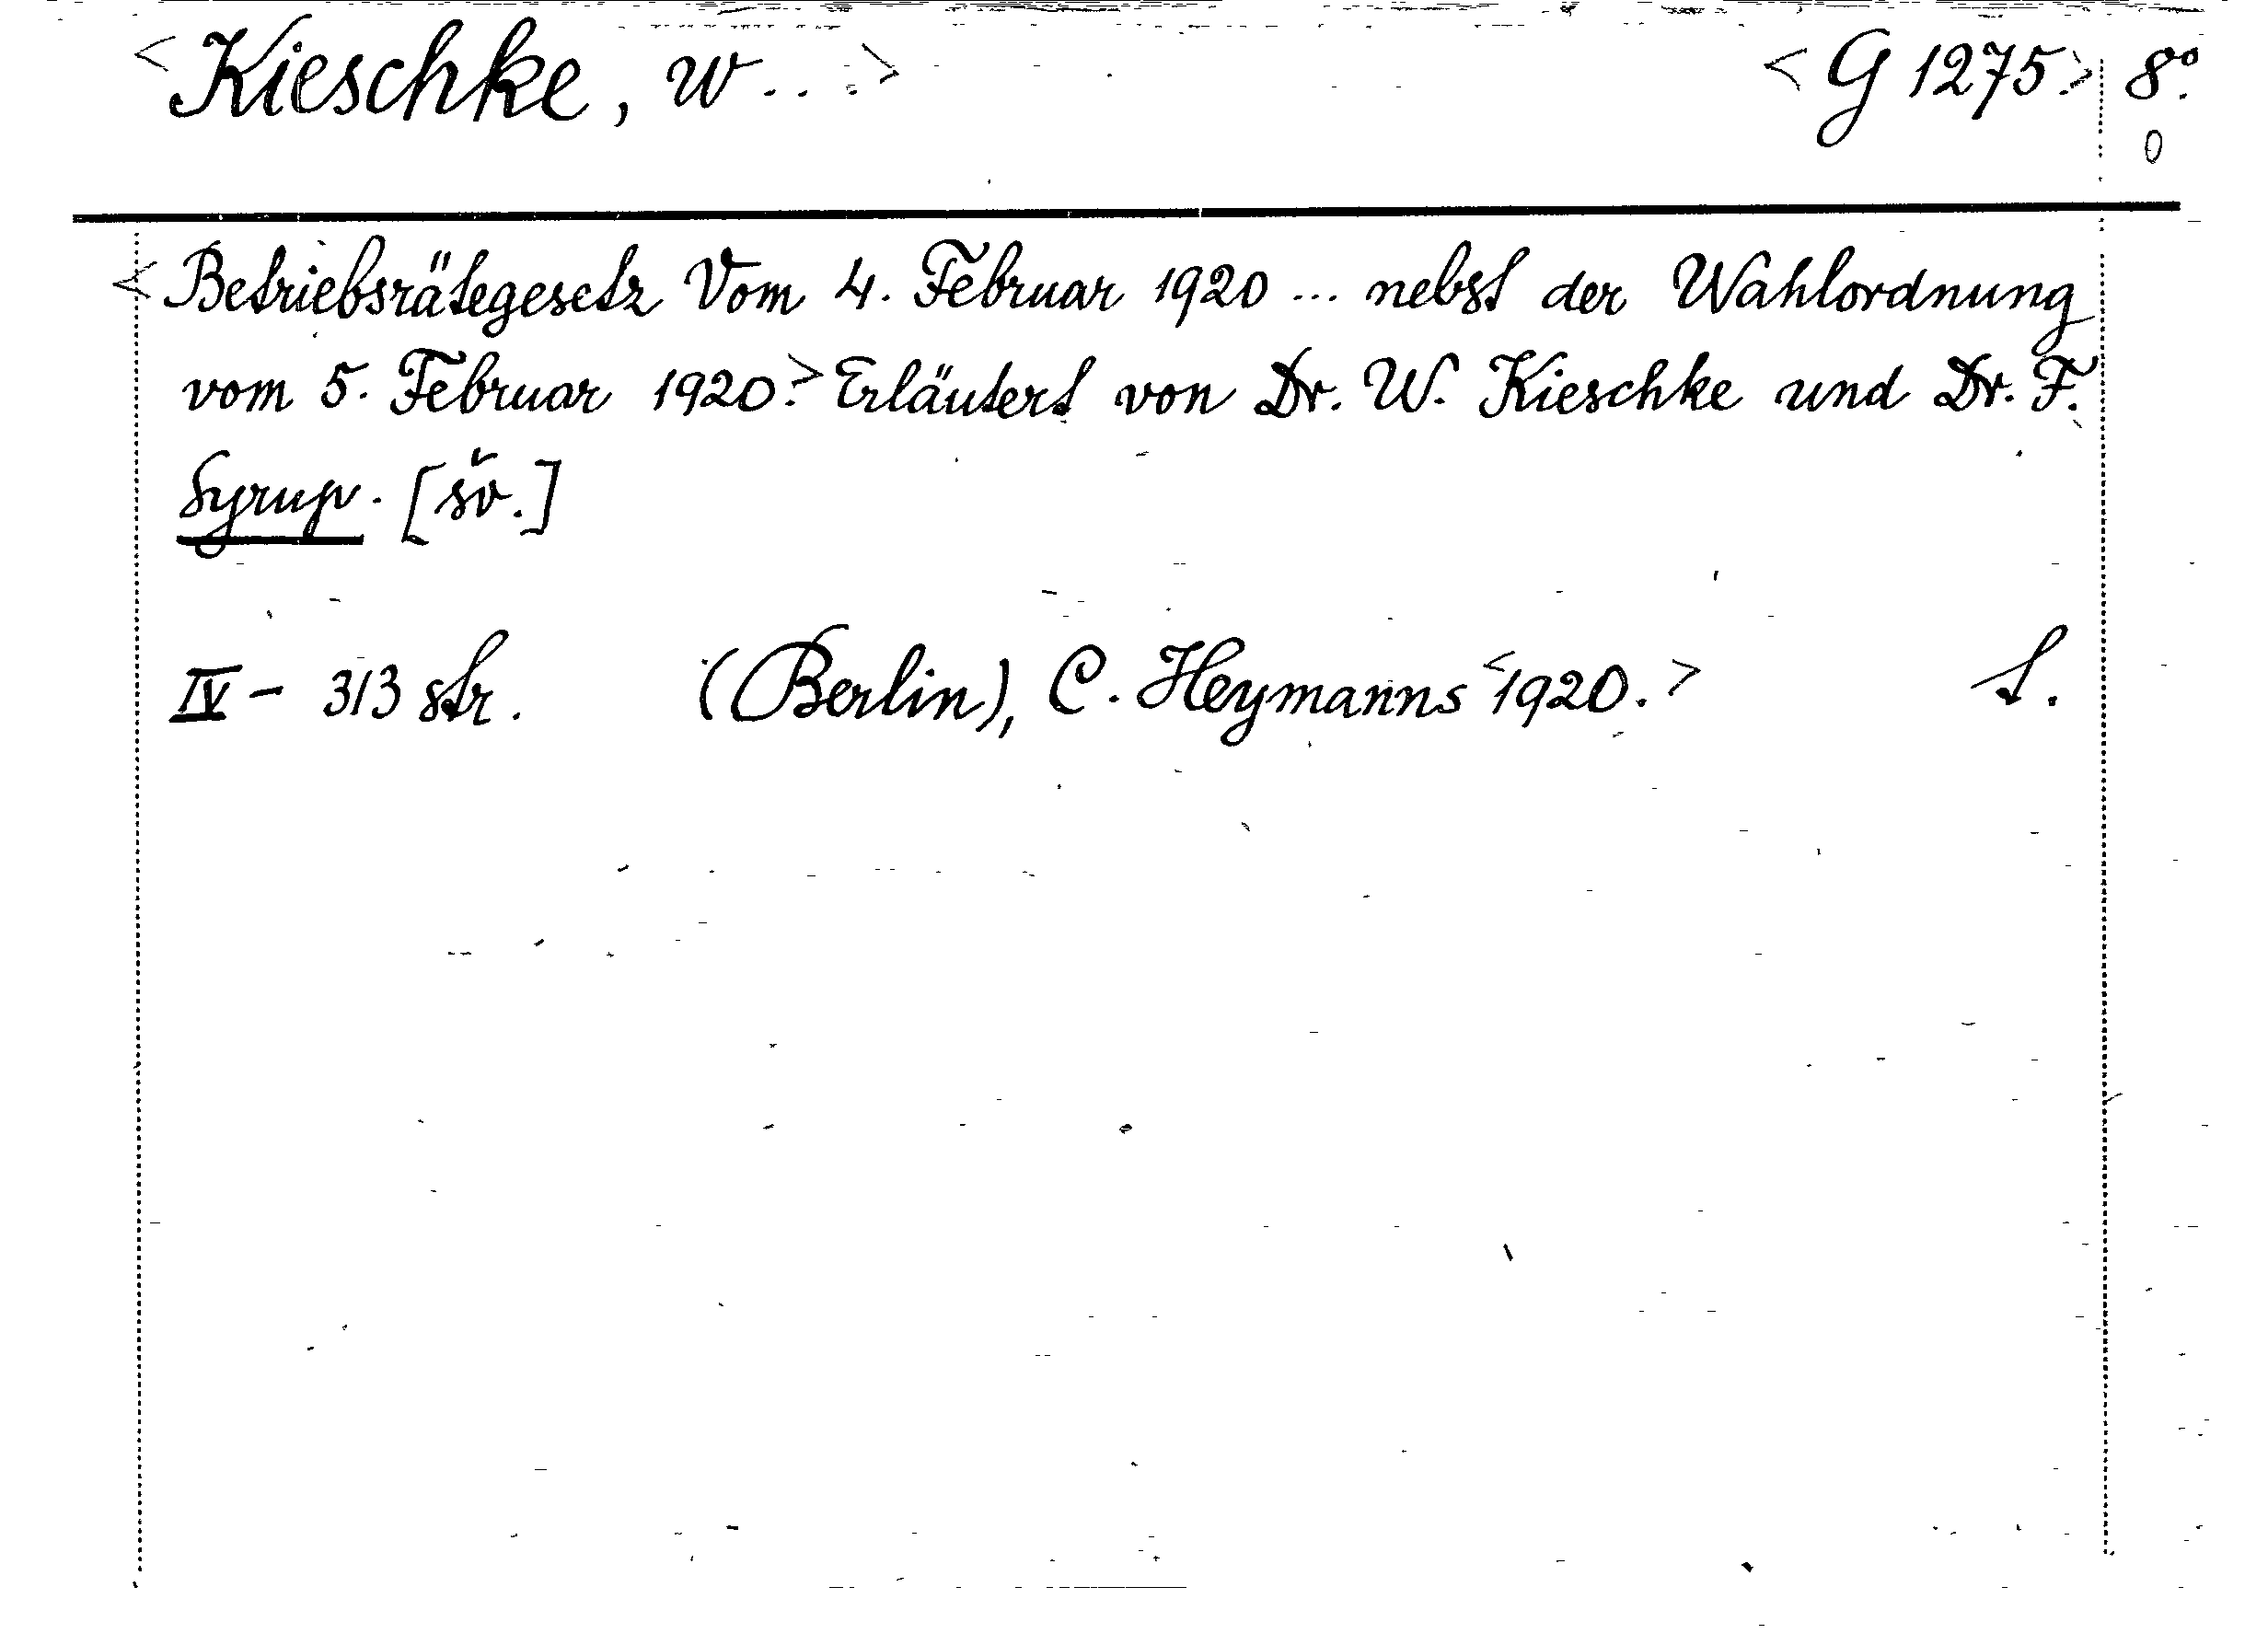 <Kieschke, W...> <G 1275.> 8°.
0
<Betriebsrätegesetz Vom 4. Februar 1920 ... nebst der Wahlordnung
vom 5. Februar 1920.> Erläutert von Dr. W. Kieschke und Dr. F.
Syrup. [šv.]
IV - 313 str. (Berlin), C. Heymanns <1920.>